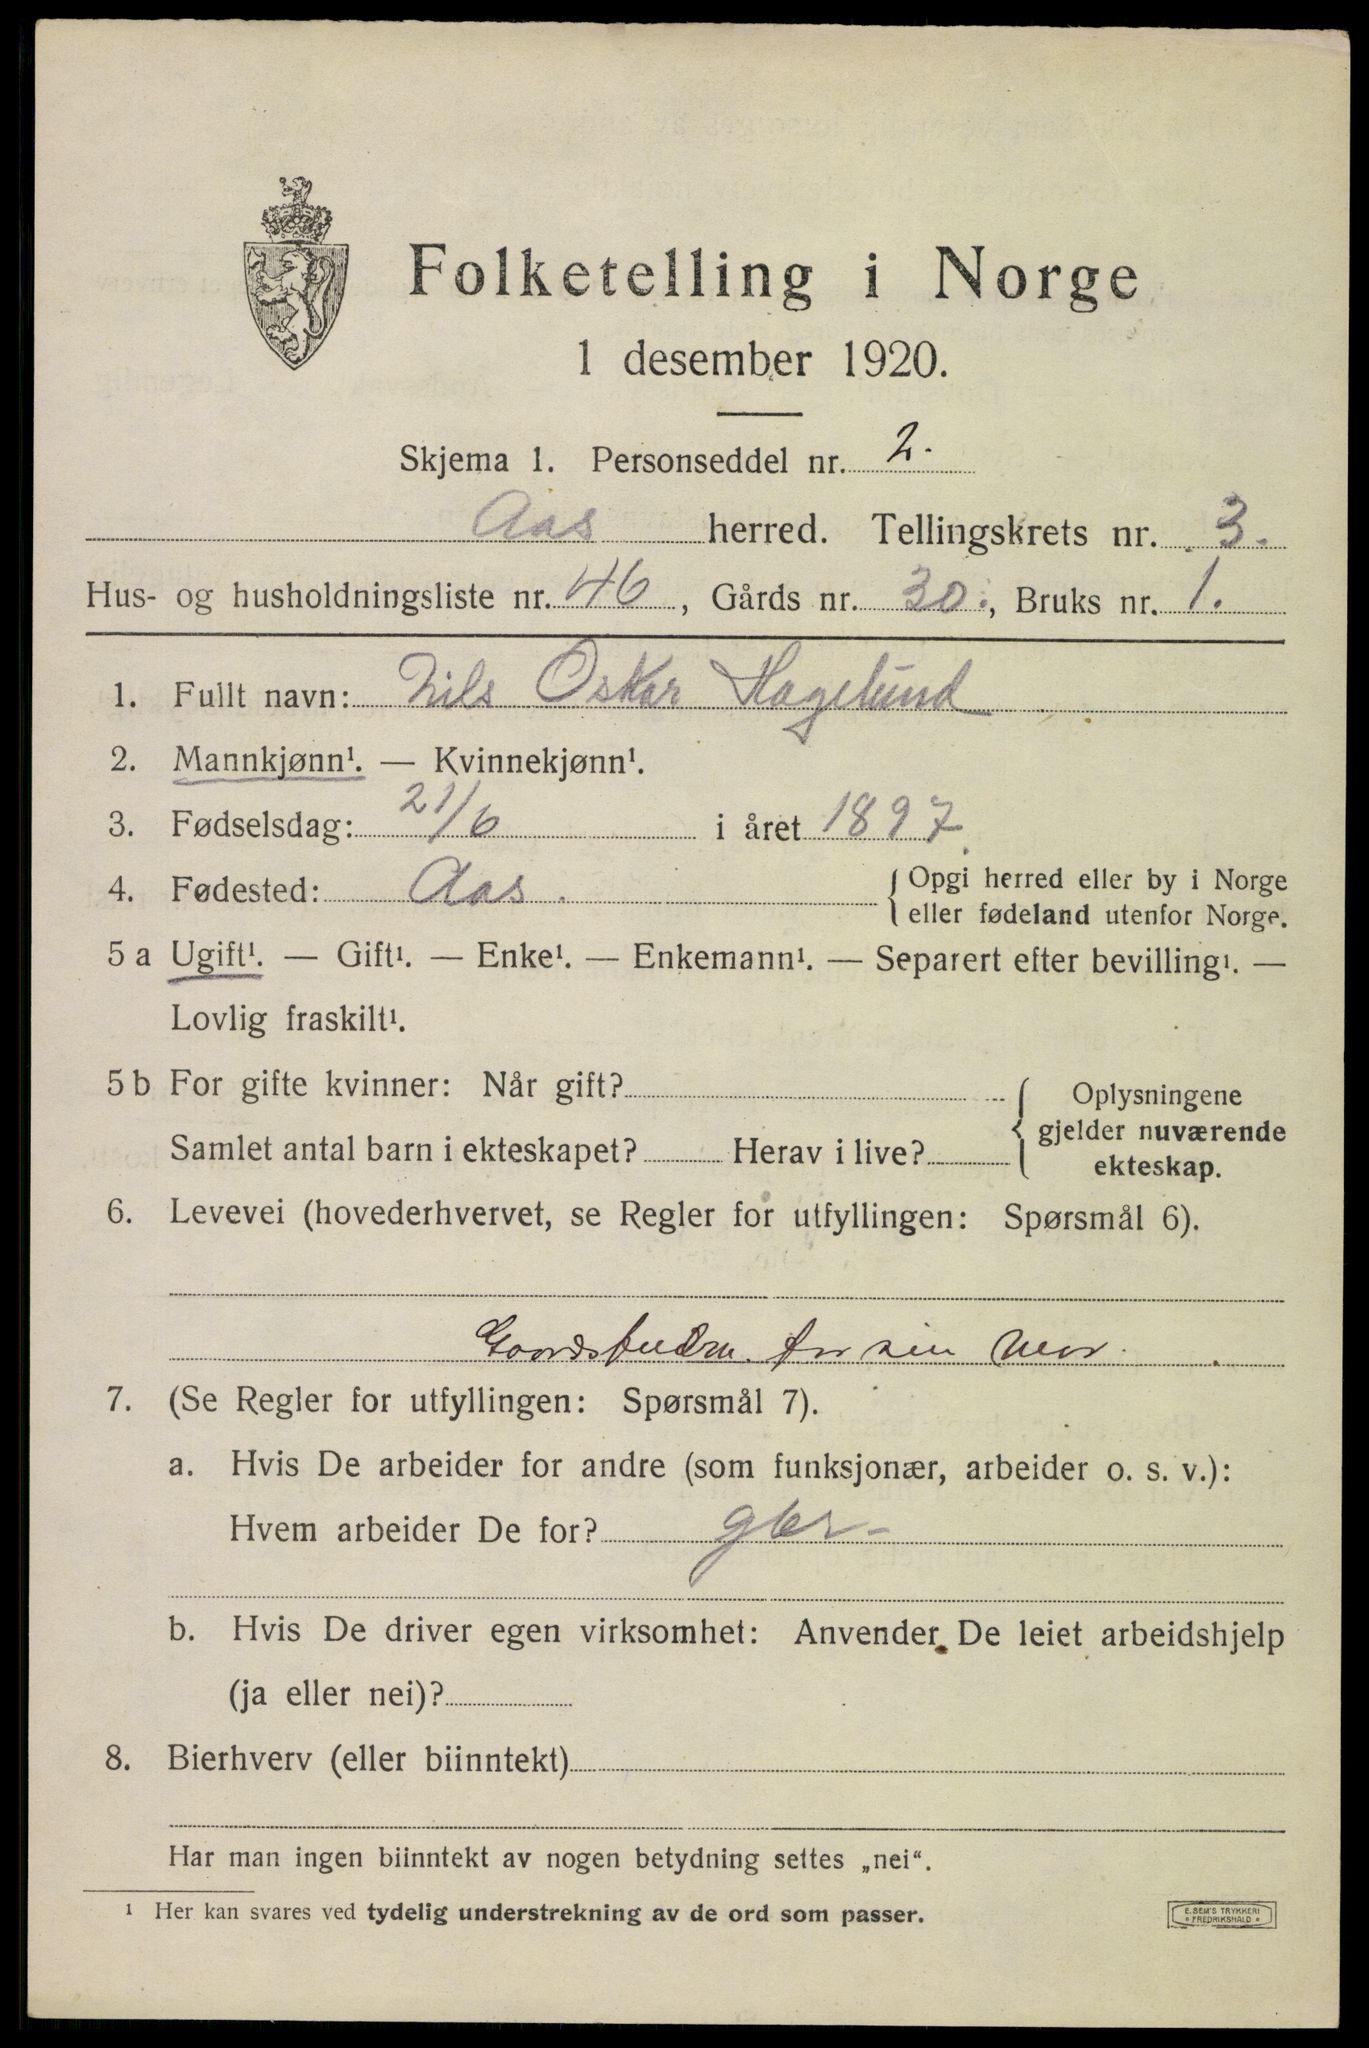 Folketelling i Norge
1 desember 1920.
Skjema 1. Personseddel nr. 2.
Aas herred. Tellingskrets nr. 3.
Hus- og husholdningsliste nr. 46, Gårds nr. 30., Bruks nr. 1.
1. Fullt navn: Nils Oskar Hagelund
2. Mannkjønn¹. — Kvinnekjønn¹.
3. Fødselsdag: 21/6 i året 1897
4. Fødested: Aas. { Opgi herred eller by i Norge
eller fødeland utenfor Norge.
5 a Ugift¹. — Gift¹. — Enke¹. — Enkemann¹. — Separert efter bevilling¹. —
Lovlig fraskilt¹.
5 b For gifte kvinner: Når gift? { Oplysningene
gjelder nuværende
Samlet antal barn i ekteskapet? Herav i live?
ekteskap.
6. Levevei (hovederhvervet, se Regler for utfyllingen: Spørsmål 6).
for sin mor.
7. (Se Regler for utfyllingen: Spørsmål 7).
a. Hvis De arbeider for andre (som funksjonær, arbeider o. s. v.):
Hvem arbeider De for? gbr-
b. Hvis De driver egen virksomhet: Anvender De leiet arbeidshjelp
(ja eller nei)?
8. Bierhverv (eller biinntekt)
Har man ingen biinntekt av nogen betydning settes „nei“.
¹ Her kan svares ved tydelig understrekning av de ord som passer.
E. SEM'S TRYKKERI
* FREDRIKSHALD *